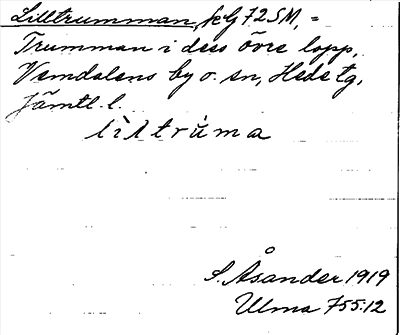 Lilltrumman, jclg 72SM, =
Trumman i dess övre lopp,
Vemdalens by o. sn, Hede tg,
Jämtl. l.
lìltrùma
S. Åsander 1919
Ulma 755:12